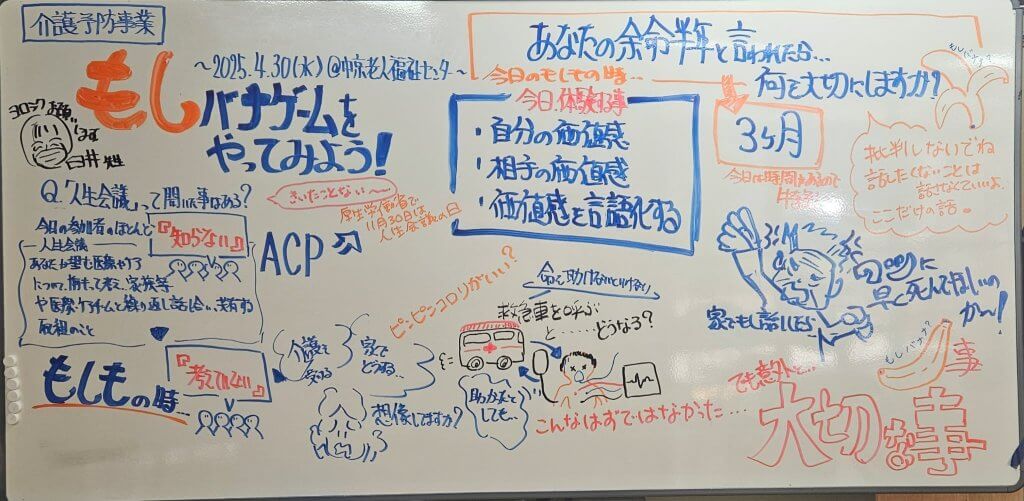 介護予防事業
～2025.4.30(水)@中京老人福祉センター～
もしバナゲームを
やってみよう!
ヨロシク
お願い
します
臼井
Q.「人生会議」って聞いた事はある?
きいたことない～
今日の参加者のほとんど
『知らない』
人生会議
あなたが望む医療やケア
について前もって考え、家族等
や医療・ケアチームと繰り返し話し合い、共有する
取組のこと
ACP
厚生労働省で
11月30日は
人生会議の日
もしもの時…
『考えてない』
介護を
受ける
家で
どうする…
想像しますか?
ピンピンコロリがいい?
命を助けないといけない
救急車を呼ぶ
と……どうなる?
助かったと
しても…
こんなはずではなかった…
あなたの余命半年と言われたら…
何を大切にしますか?
今日のもしもの時…
3ヶ月
今日は時間があるので
今日体験する事
・自分の価値感
・相手の価値感
・価値感を言語化する
もしバナナ?
批判しないでね
話したくないことは
話さなくていいよ。
ここだけの話。
家でもし話したら
早く死んでほしいの
かー!
もしバナナ?
でも意外と…
大切な事
事